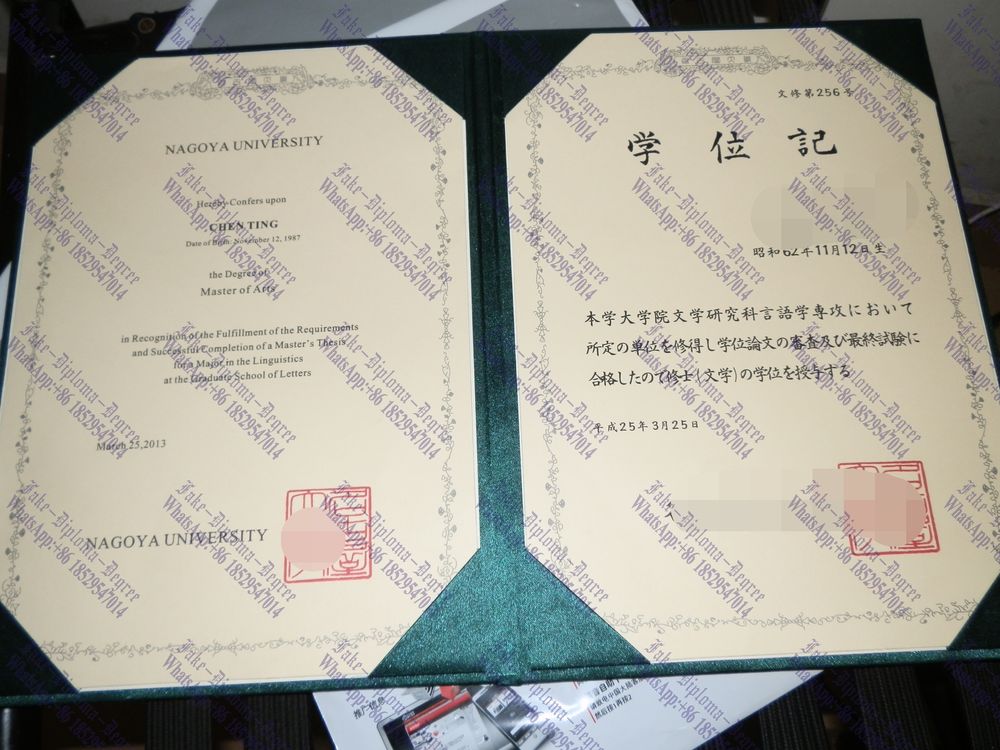 NAGOYA UNIVERSITY
Hereby Confers upon
CHEN TING
Date of Birth: November 12, 1987
the Degree of
Master of Arts
in Recognition of the Fulfillment of the Requirements
and Successful Completion of a Master's Thesis
for a Major in the Linguistics
at the Graduate School of Letters
March 25,2013
NAGOYA UNIVERSITY
文修第256号
学位記
昭和62年11月12日生
本学大学院文学研究科言語学専攻において
所定の単位を修得し学位論文の審査及び最終試験に
合格したので修士(文学)の学位を授与する
平成25年3月25日
Fake-Diploma-Degree
WhatsApp:+86 18529547014